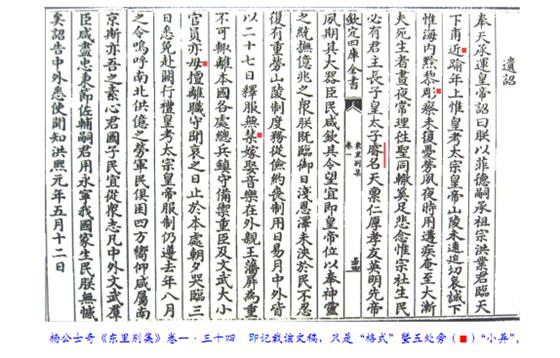 遺詔
奉天承運皇帝詔曰朕以菲德嗣承祖宗洪業君臨天
下甫近踰年上惟皇考太宗皇帝山陵未遠追切哀誠下
惟海内黔黎彫瘵未復憂勞夙夜時用遘疾奄至大漸
夫死生者晝夜常理往聖同轍奚足悲念惟宗社生民
必有君主長子皇太子廟名天稟仁厚孝友英明先帝
欽定四庫全書
東里别集
卷一
夙期其大器臣民咸欽其令望宜即皇帝位以奉神靈
之統撫億兆之衆朕既臨御日淺恩澤未浹於民不忍
復有重勞山陵制度務從儉約喪制用日易月中外皆
以二十七日釋服無禁嫁娶音樂在外親王藩屏為重
不可輒離本國各處總兵鎮守備禦重臣及文武大小
官員亦毋擅離職守聞哀之日止於本處朝夕哭臨三
日悉免赴闕行禮皇考太宗皇帝服制仍遵去年八月
之令嗚呼南北供億之勞軍民俱困四方嚮仰咸屬南
京斯亦吾之素心君國子民宜從衆志凡中外文武羣
臣咸盡忠秉節佐輔嗣君用永寧我國家生民朕無憾
矣詔告中外悉使聞知洪熙元年五月十二日
杨公士奇《东里别集》卷一·三十四 即记载该文稿，只是“格式”暨五处旁（■）“小异”。